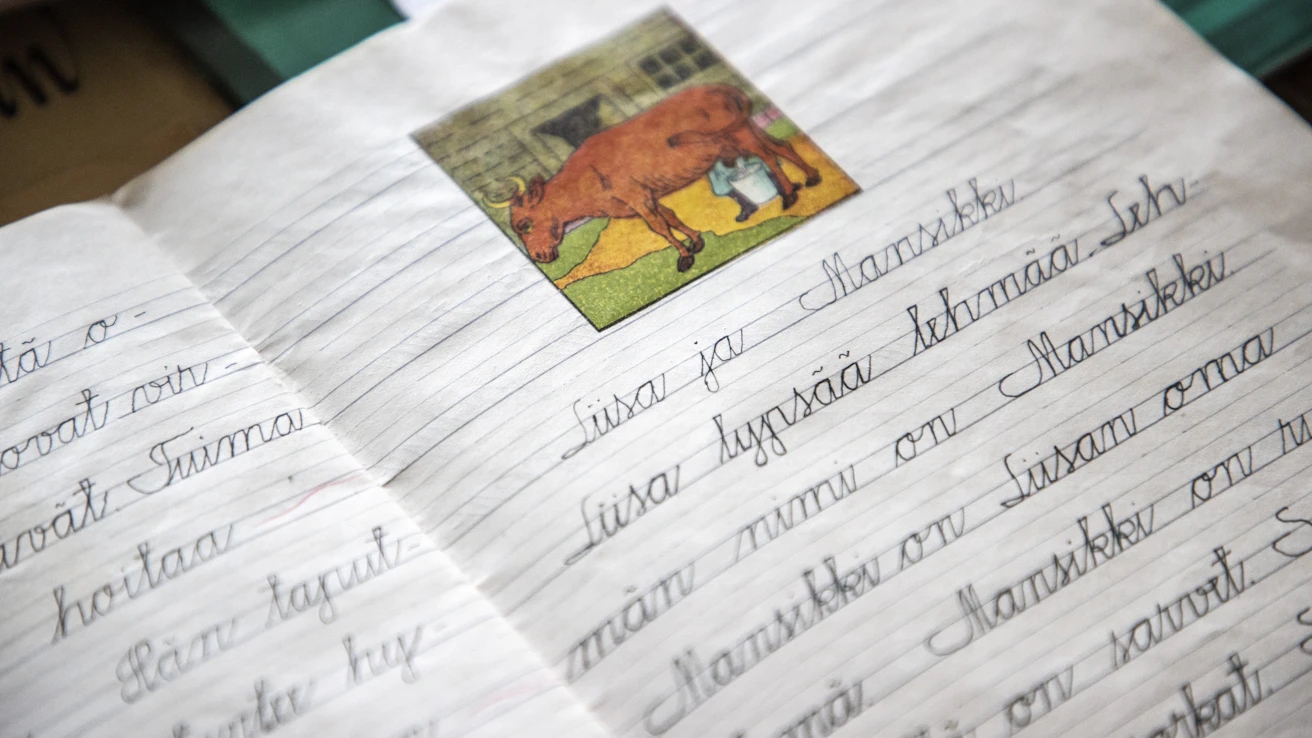 tä o-
ovat vir-
vät. Tuima
hoitaa
Hän taput-
hy-
Liisa ja Mansikki.
Liisa lypsää lehmää. Leh-
män nimi on Mansikki.
Mansikki on Liisan oma
Mansikki on
on sarvet.